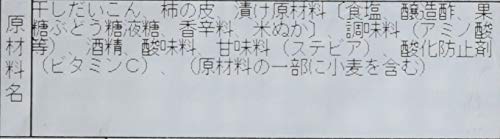 原材料名
干しだいこん、柿の皮、漬け原材料〔食塩、醸造酢、果
糖ぶどう糖液糖、香辛料、米ぬか〕、調味料（アミノ酸
等）、酒精、酸味料、甘味料（ステビア）、酸化防止剤
（ビタミンＣ）、（原材料の一部に小麦を含む）